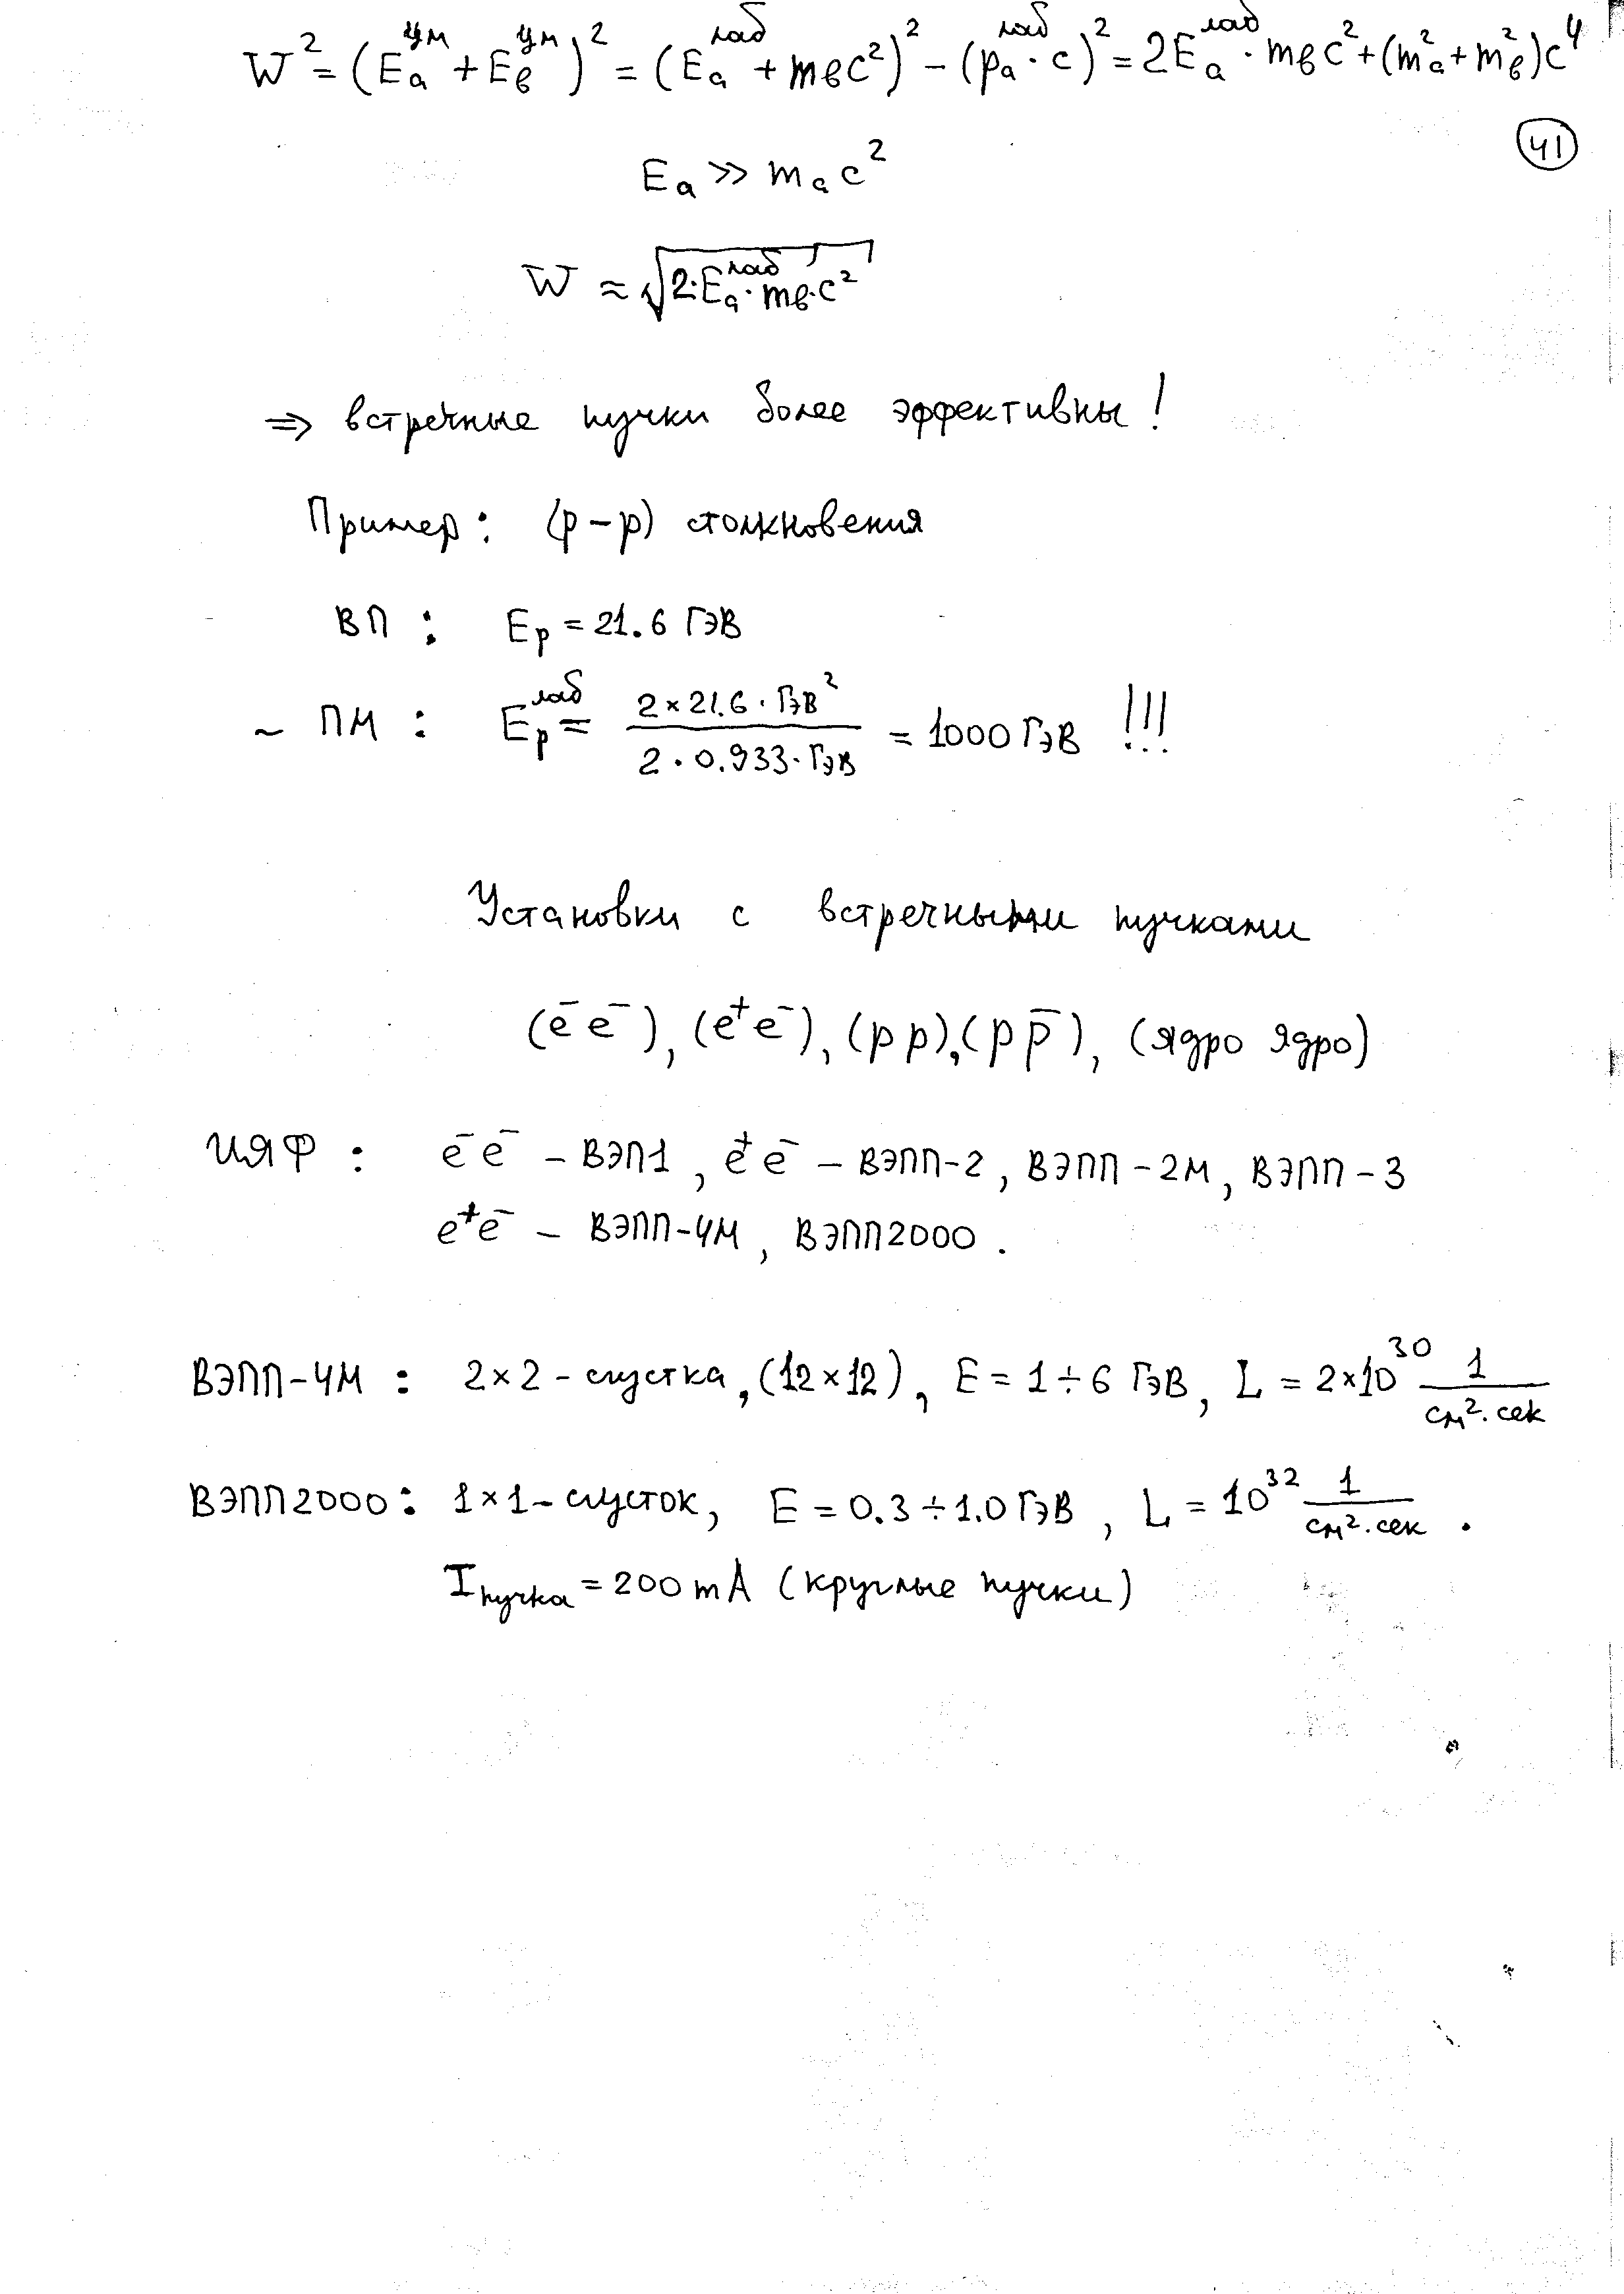 W² = (Eₐ^цм + Eв^цм)² = (Eₐ^лаб + mвc²)² − (pₐ^лаб · c)² = 2Eₐ^лаб · mвc² + (mₐ² + mв²)c⁴
41
Eₐ >> mₐc²
W ≈ √(2·Eₐ^лаб · mв·c²)
⇒ встречные пучки более эффективны!
Пример: (p – p) столкновения
ВП : Eₚ = 21.6 ГэВ
~ ПМ : Eₚ^лаб = (2 × 21.6 · ГэВ²) / (2 · 0.933 · ГэВ) = 1000 ГэВ !!!
Установки с встречными пучками
(e⁻ e⁻), (e⁺ e⁻), (p p), (p p̄), (ядро ядро)
ИЯФ : e⁻ e⁻ – ВЭП1, e⁺ e⁻ – ВЭПП-2, ВЭПП-2М, ВЭПП-3
e⁺e⁻ – ВЭПП-4М, ВЭПП2000.
ВЭПП-4М : 2 × 2 - сгустка, (12 × 12), E = 1 ÷ 6 ГэВ, L = 2×10³⁰ 1/(см² · сек)
ВЭПП2000 : 1 × 1 - сгусток, E = 0.3 ÷ 1.0 ГэВ, L = 10³² 1/(см² · сек).
I пучка = 200 mA (круглые пучки)